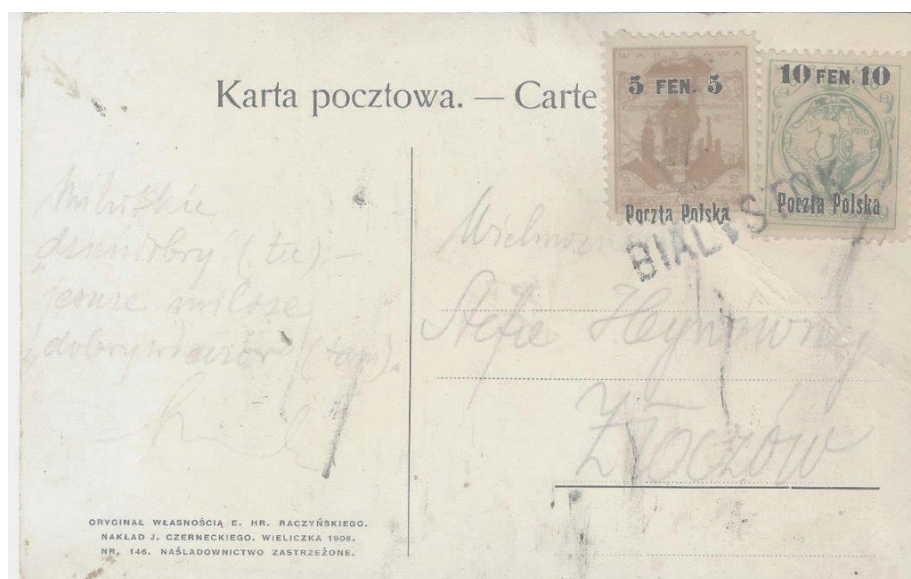 Karta pocztowa. — Carte
WARSZAWA
5 FEN. 5
10 FEN. 10
1916
Poczta Polska
Poczta Polska
BIAL STOK
Miluśkie
"dzieńdobry" (tu) —
jeszcze milsze
"dobrywieczór" (tam).
Stefie Heynównej
Złoczów
ORYGINAŁ WŁASNOŚCIĄ E. HR. RACZYŃSKIEGO.
NAKŁAD J. CZERNECKIEGO. WIELICZKA 1908.
NR. 146. NAŚLADOWNICTWO ZASTRZEŻONE.